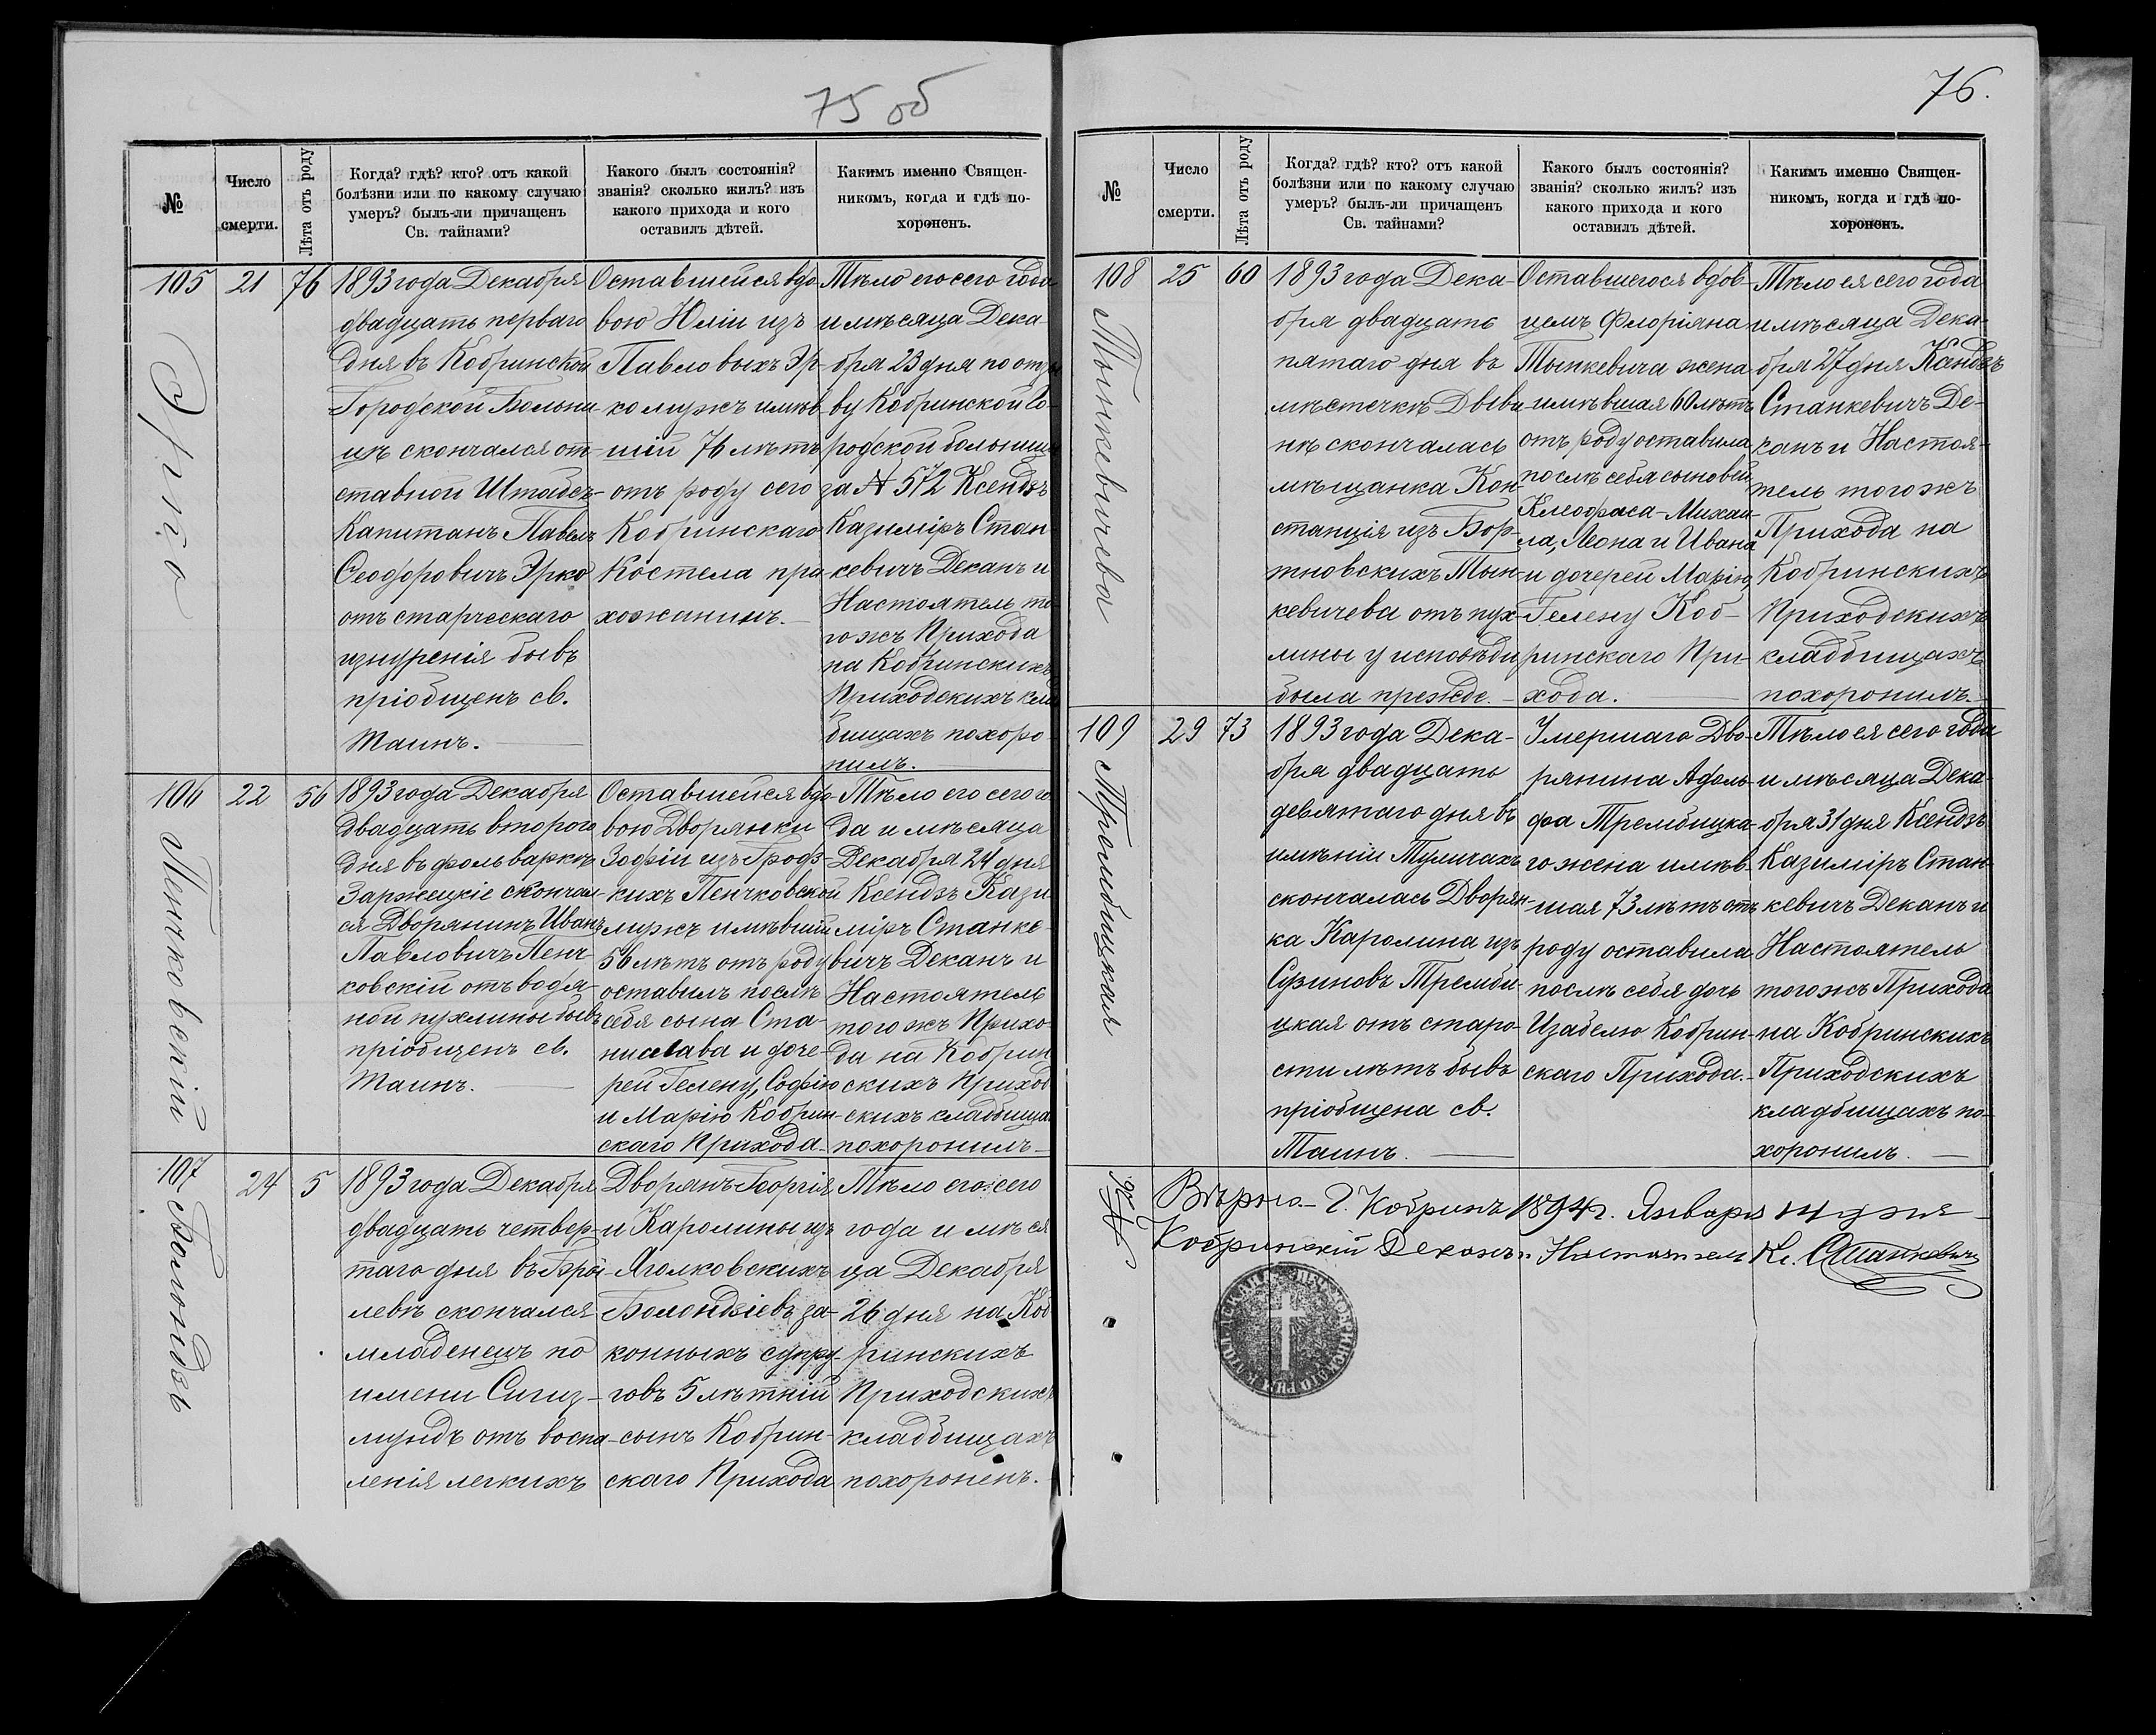 75 об
№
Число
смерти.
Лѣта отъ роду
Когда? гдѣ? кто? отъ какой
болѣзни или по какому случаю
умеръ? былъ-ли причащенъ
Св. тайнами?
Какого былъ состоянія?
званія? сколько жилъ? изъ
какого прихода и кого
оставилъ дѣтей.
Каким именно Священ-
никомъ, когда и гдѣ по-
хороненъ.
105
Эрко
21
76
1893 года Декабря
двадцать перваго
дня въ Кобринской
Городской Больни-
цѣ скончался от-
ставной Штабсъ-
Капитанъ Павелъ
Феодоровичъ Эрко
отъ старческаго
изнуренія бывъ
пріобщенъ св.
Таинъ.
Оставшейся вдо
вою Юліи изъ
Павловыхъ Эр-
ко мужъ имѣв-
шій 76 лѣтъ
отъ роду сего
Кобринскаго
Костела при
хожанинъ.
Тѣло его сего года
и мѣсяца Дека
бря 23 дня по отзы
ву Кобринской Го-
родской больницы
за № 572 Ксендзъ
Казиміръ Стан
кевичъ Деканъ и
Настоятель то
гожъ Прихода
на Кобринскихъ
Приходскихъ клад
бищахъ похоро-
нилъ.
106
Пенчковскій
22
56
1893 года Декабря
двадцать второго
дня въ фольваркѣ
Заржецкіе скончал
ся Дворянинъ Иванъ
Павловичъ Пенч
ковскій отъ водя-
ной пухлины бывъ
пріобщенъ св.
Таинъ.
Оставшейся вдо-
вою Дворянки
Зофіи изъ Гродз-
кихъ Пенчковской
мужъ имѣвшій
56 лѣтъ отъ роду
оставилъ послѣ
себя сына Ста-
нислава и доче-
рей Гелену, Софію
и Марію Кобрин-
скаго Прихода
Тѣло его сего го
да и мѣсяца
Декабря 24 дня
Ксендзъ Кази
міръ Станке-
вичъ Деканъ и
Настоятель
того жъ Прихо-
да на Кобрин
скихъ Приход
скихъ кладбища
похоронилъ
107
Болондзь
24
5
1893 года Декабря
двадцать четвер-
таго дня въ
левѣ скончался
младенецъ по
имени Сигиз-
мундъ отъ воспа
ленія легкихъ
Дворянъ Георгія
и Каролины изъ
Яголковскихъ
Болондзіевъ за-
конныхъ супру-
говъ 5 лѣтній
сынъ Кобрин-
скаго Прихода
Тѣло его сего
года и мѣся
ца Декабря
26 дня на Коб
ринскихъ
Приходскихъ
кладбищахъ
похороненъ.
76.
№
Число
смерти.
Лѣта отъ роду
Когда? гдѣ? кто? отъ какой
болѣзни или по какому случаю
умеръ? былъ-ли причащенъ
Св. тайнами?
Какого былъ состоянія?
званія? сколько жилъ? изъ
какого прихода и кого
оставилъ дѣтей.
Какимъ именно Священ-
никомъ, когда и гдѣ по-
хороненъ.
108
Тынкевичева
25
60
1893 года Дека-
бря двадцать
пятаго дня въ
мѣстечкѣ Дыви
нѣ скончалась
мѣщанка Кон-
станція изъ Бор-
тновскихъ Тын-
кевичева отъ пух-
лины у исповѣди
была прежде.
Оставшегося вдов-
цемъ Флоріяна
Тынкевича жена
имѣвшая 60 лѣтъ
отъ роду оставила
послѣ себя сыновей
Клеофаса-Михаи-
ла, Леона и Ивана
и дочерей Марію,
Гелену Коб-
ринскаго При-
хода.
Тѣло ея сего года
и мѣсяца Дека-
бря 27 дня Ксендзъ
Станкевичъ Де-
канъ и Настоя-
тель того жъ
Прихода на
Кобринскихъ
Приходскихъ
кладбищахъ
похоронилъ.
109
Трембицкая
29
73
1893 года Дека-
бря двадцать
девятаго дня въ
имѣніи Туличахъ
скончалась Дворян-
ка Каролина изъ
Сузиновъ Трембиц
кая отъ старо-
сти лѣтъ бывъ
пріобщена св.
Таинъ.
Умершаго Дво-
рянина Адоль-
фа Трембицка-
го жена имѣв-
шая 73 лѣтъ отъ
роду оставила
послѣ себя дочь
Изабелю Кобрин-
скаго Прихода.
Тѣло ея сего года
и мѣсяца Дека-
бря 31 дня Ксендзъ
Казиміръ Стан-
кевичъ Деканъ и
Настоятель
тогожъ Прихода
на Кобринскихъ
Приходскихъ
кладбищахъ по-
хоронилъ.
Вѣрно. Г. Кобринъ 1894 г. Января 14 дня
Кобринскій Деканъ и Настоятель Кс. Станкевичъ